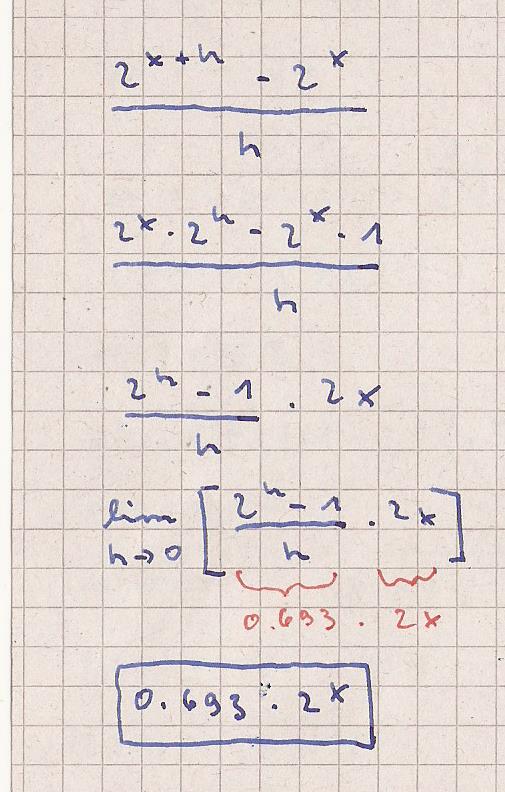 2^(x+h) - 2^x
h
2^x · 2^h - 2^x · 1
h
2^h - 1 · 2x
h
lim h→0 [ 2^h - 1 / h · 2x ]
0.693 · 2x
0.693 · 2^x